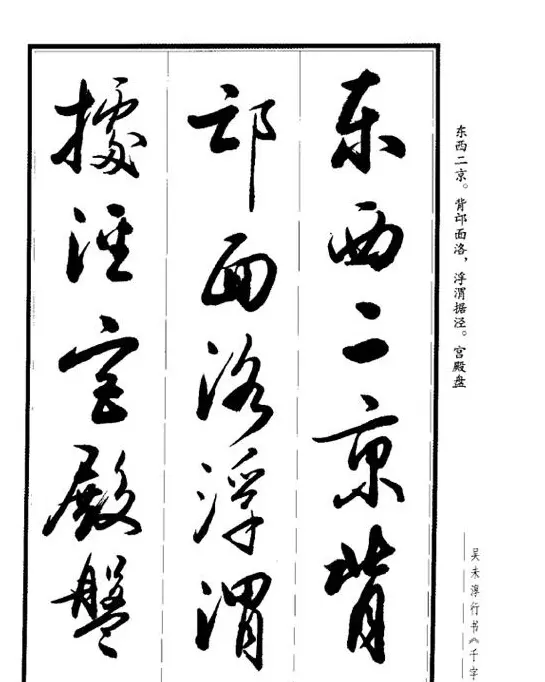 东西二京背
邙面洛浮渭
據涇宮殿盤
东西二京。背邙面洛，浮渭据泾。宫殿盘
吴未淳行书《千字